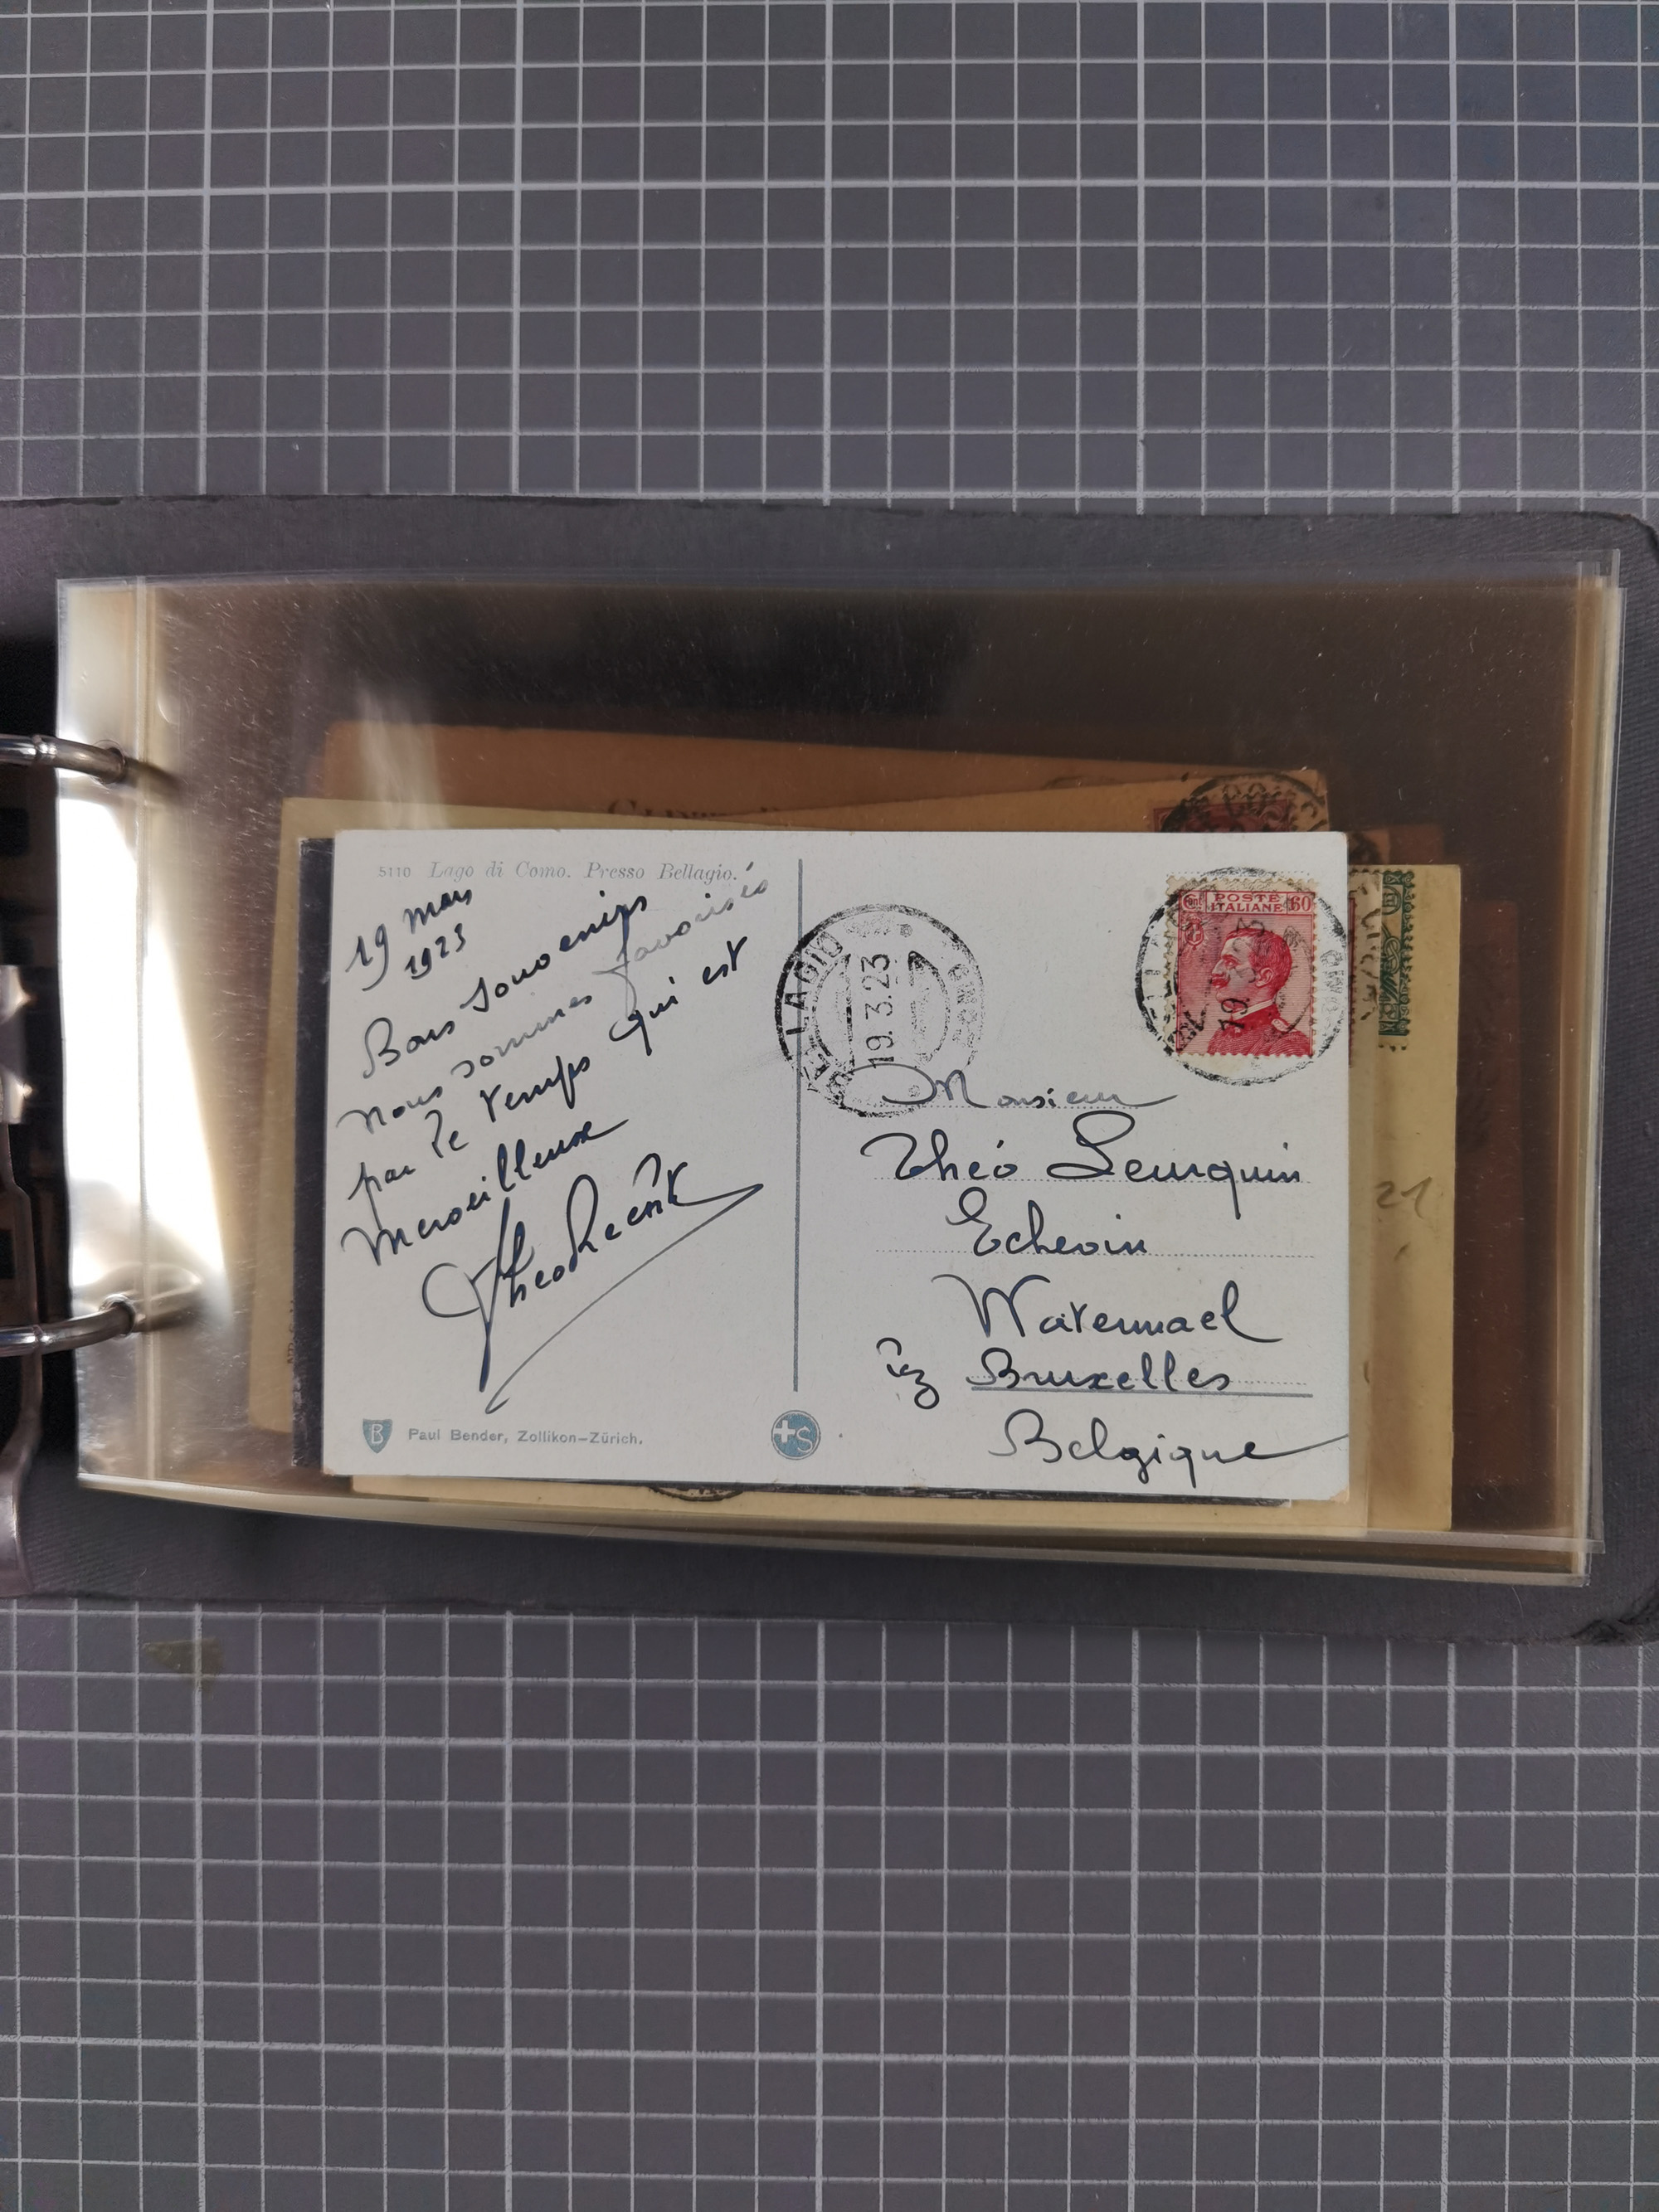 5110 Lago di Como. Presso Bellagio.
19 mars
1923
Bons Souvenirs
nous sommes favorisés
par le temps qui est
merveilleux
Theo
BELLAGIO
19.3.23
POSTE
ITALIANE
60
19.
Monsieur
Théo Leurquin
Echevin
Watermael
lez Bruxelles
Belgique
21
B
Paul Bender, Zollikon-Zürich.
+S